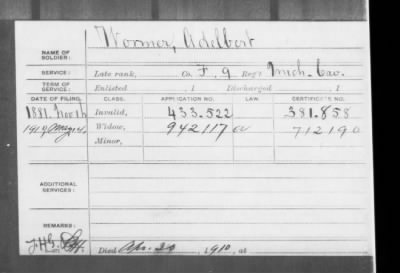 NAME OF SOLDIER: Wormer, Adelbert
SERVICE: Late rank, Co. F, 9 Reg't Mich. Cav.
TERM OF SERVICE: Enlisted , 1 Discharged , 1
DATE OF FILING. CLASS. APPLICATION NO. LAW. CERTIFICATE NO.
1881. Nov 16 Invalid, 433.522 381.858
1910 May 4, Widow, 942117 712190
Minor,
ADDITIONAL SERVICES:
REMARKS:
Died Apr. 20, 1910, at